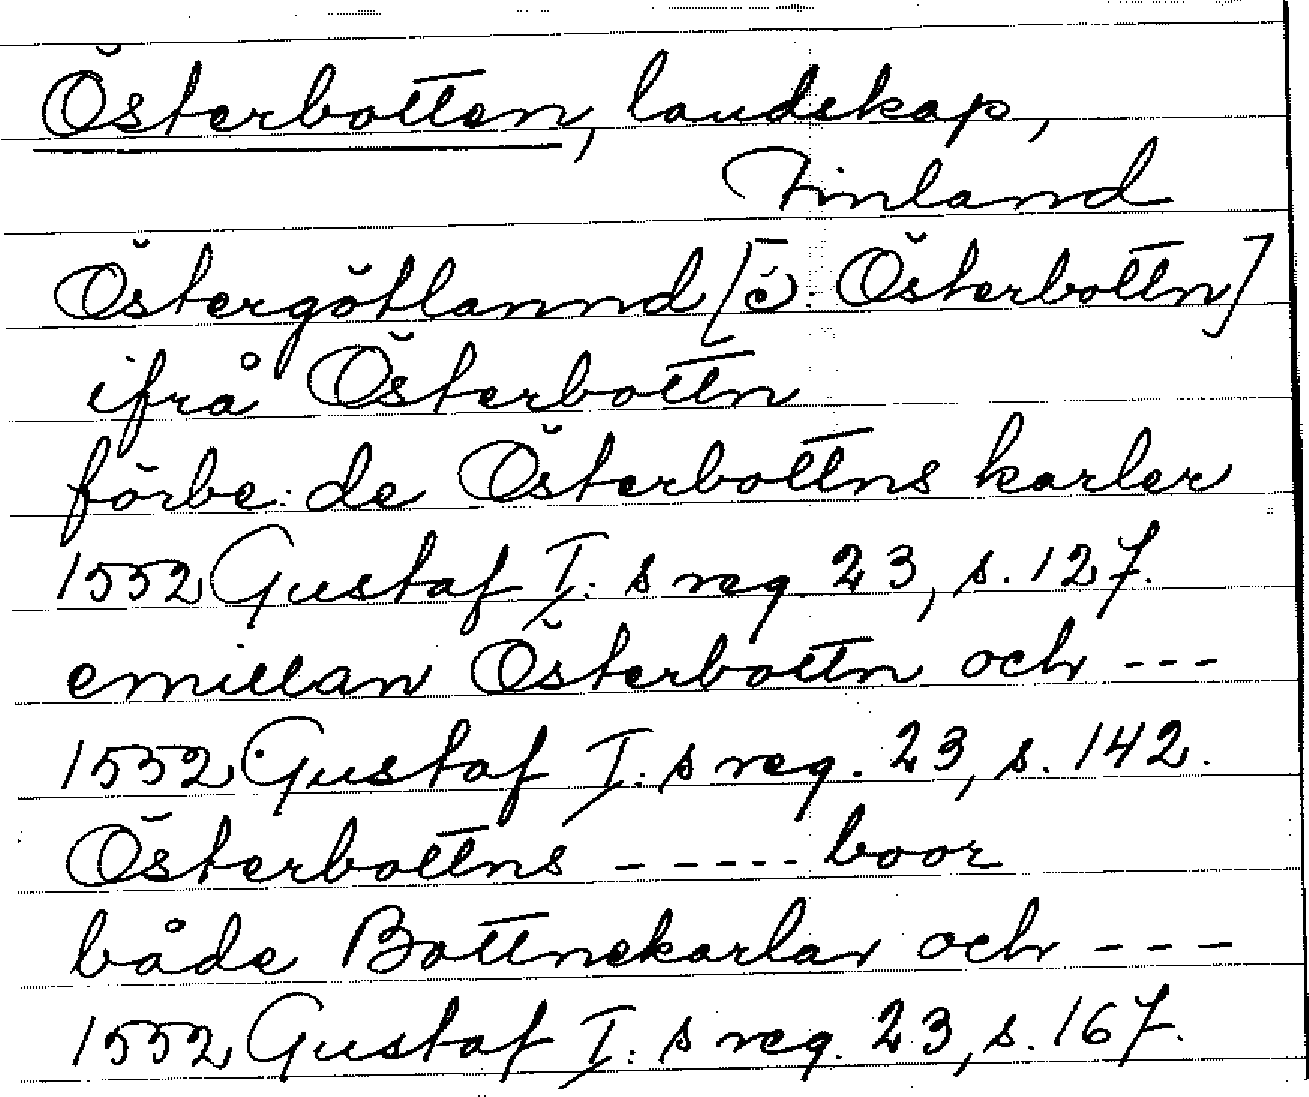 Österbotten, landskap,
Finland
Östergötlannd [ɔ: Österbottn]
ifrå Österbottn
förbe: de Österbottns karler
1552 Gustaf I: s reg. 23, s. 127.
emillan Österbottn och ---
1552 Gustaf I: s reg. 23, s. 142.
Österbottns ----- boor
både Bottnekarlar och ---
1552 Gustaf I: s reg. 23, s. 167.